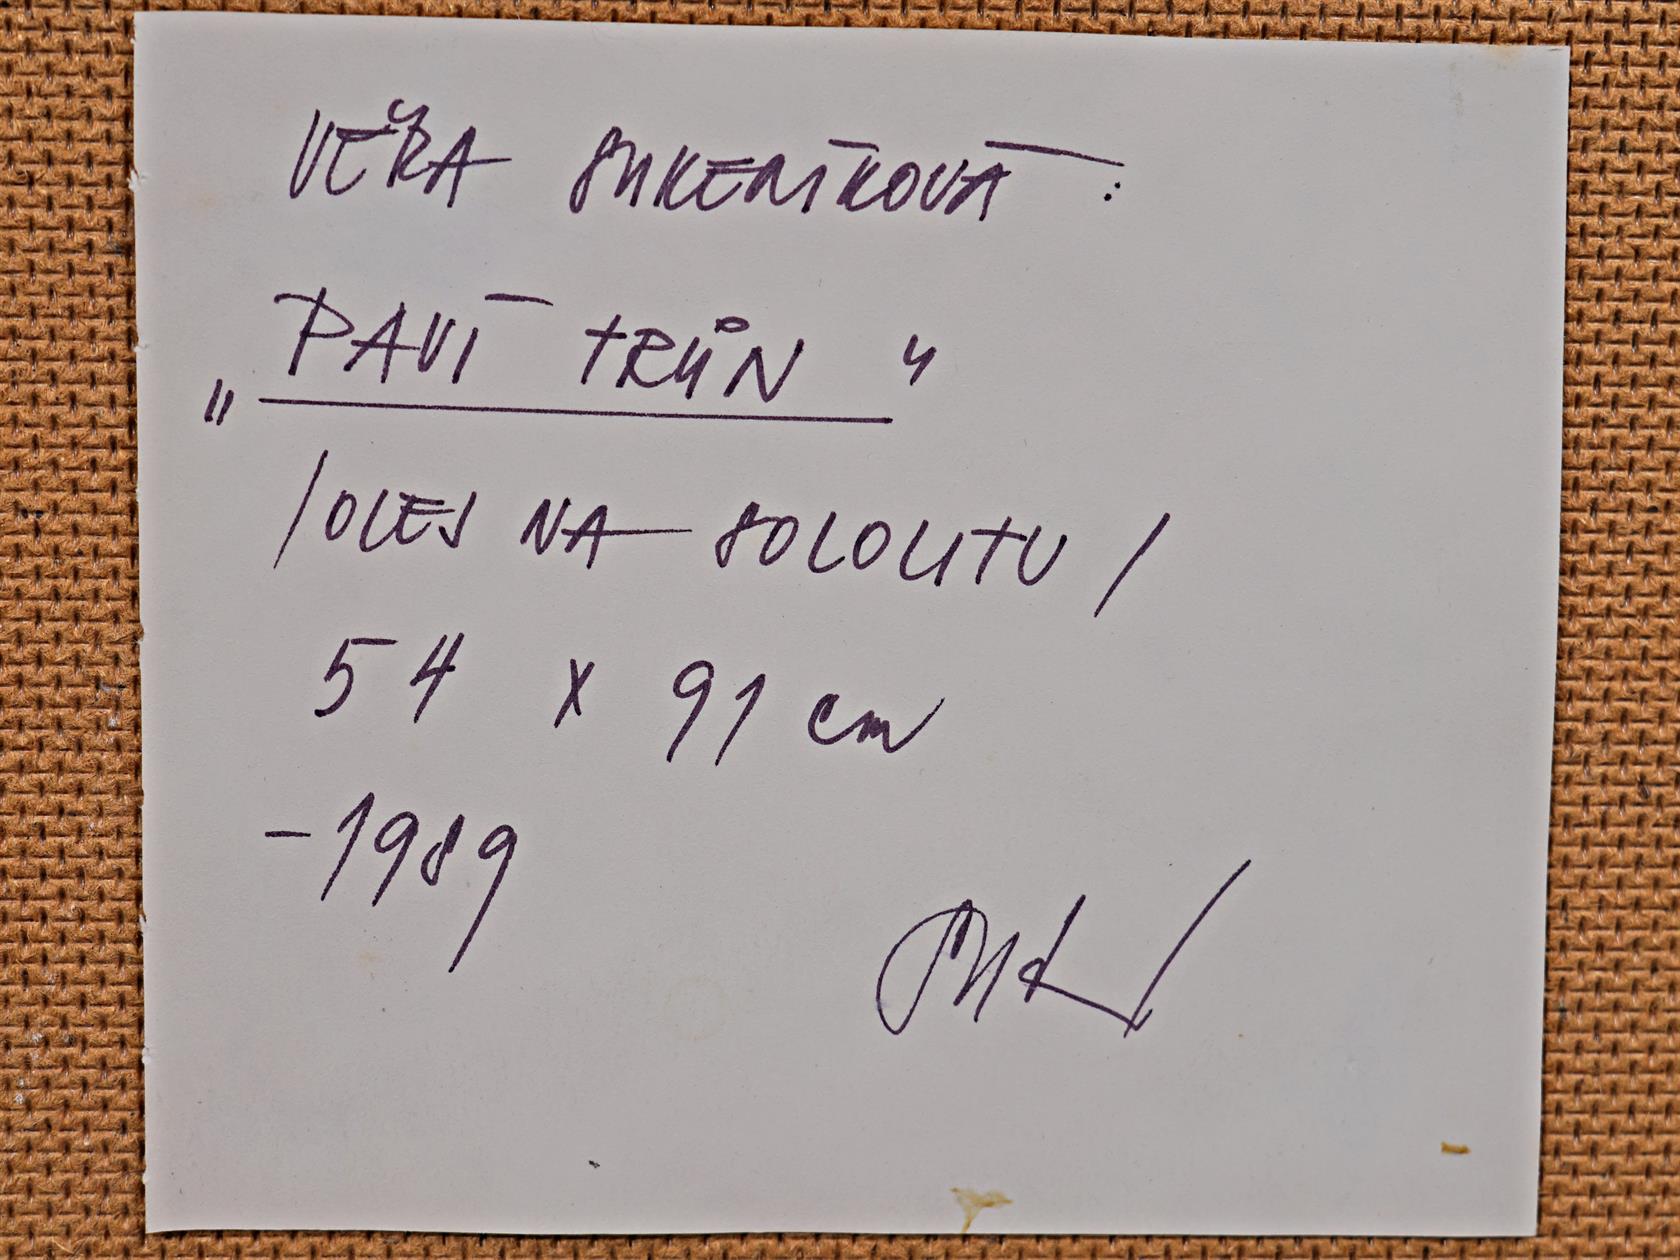 VĚRA SUKENÍKOVÁ :
„PAVÍ TRŮN“
/OLEJ NA SOLOLITU/
54 x 91 cm
-1989